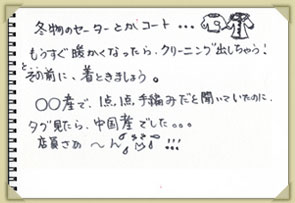 冬物のセーターとかコート...
もうすぐ暖かくなったら、クリーニング出しちゃう!
とその前に、着ときましょう。
○○産で、1点、1点、手編みだと聞いていたのに、
タグ見たら、中国産でした。。。
店員さぁ〜ん!!!